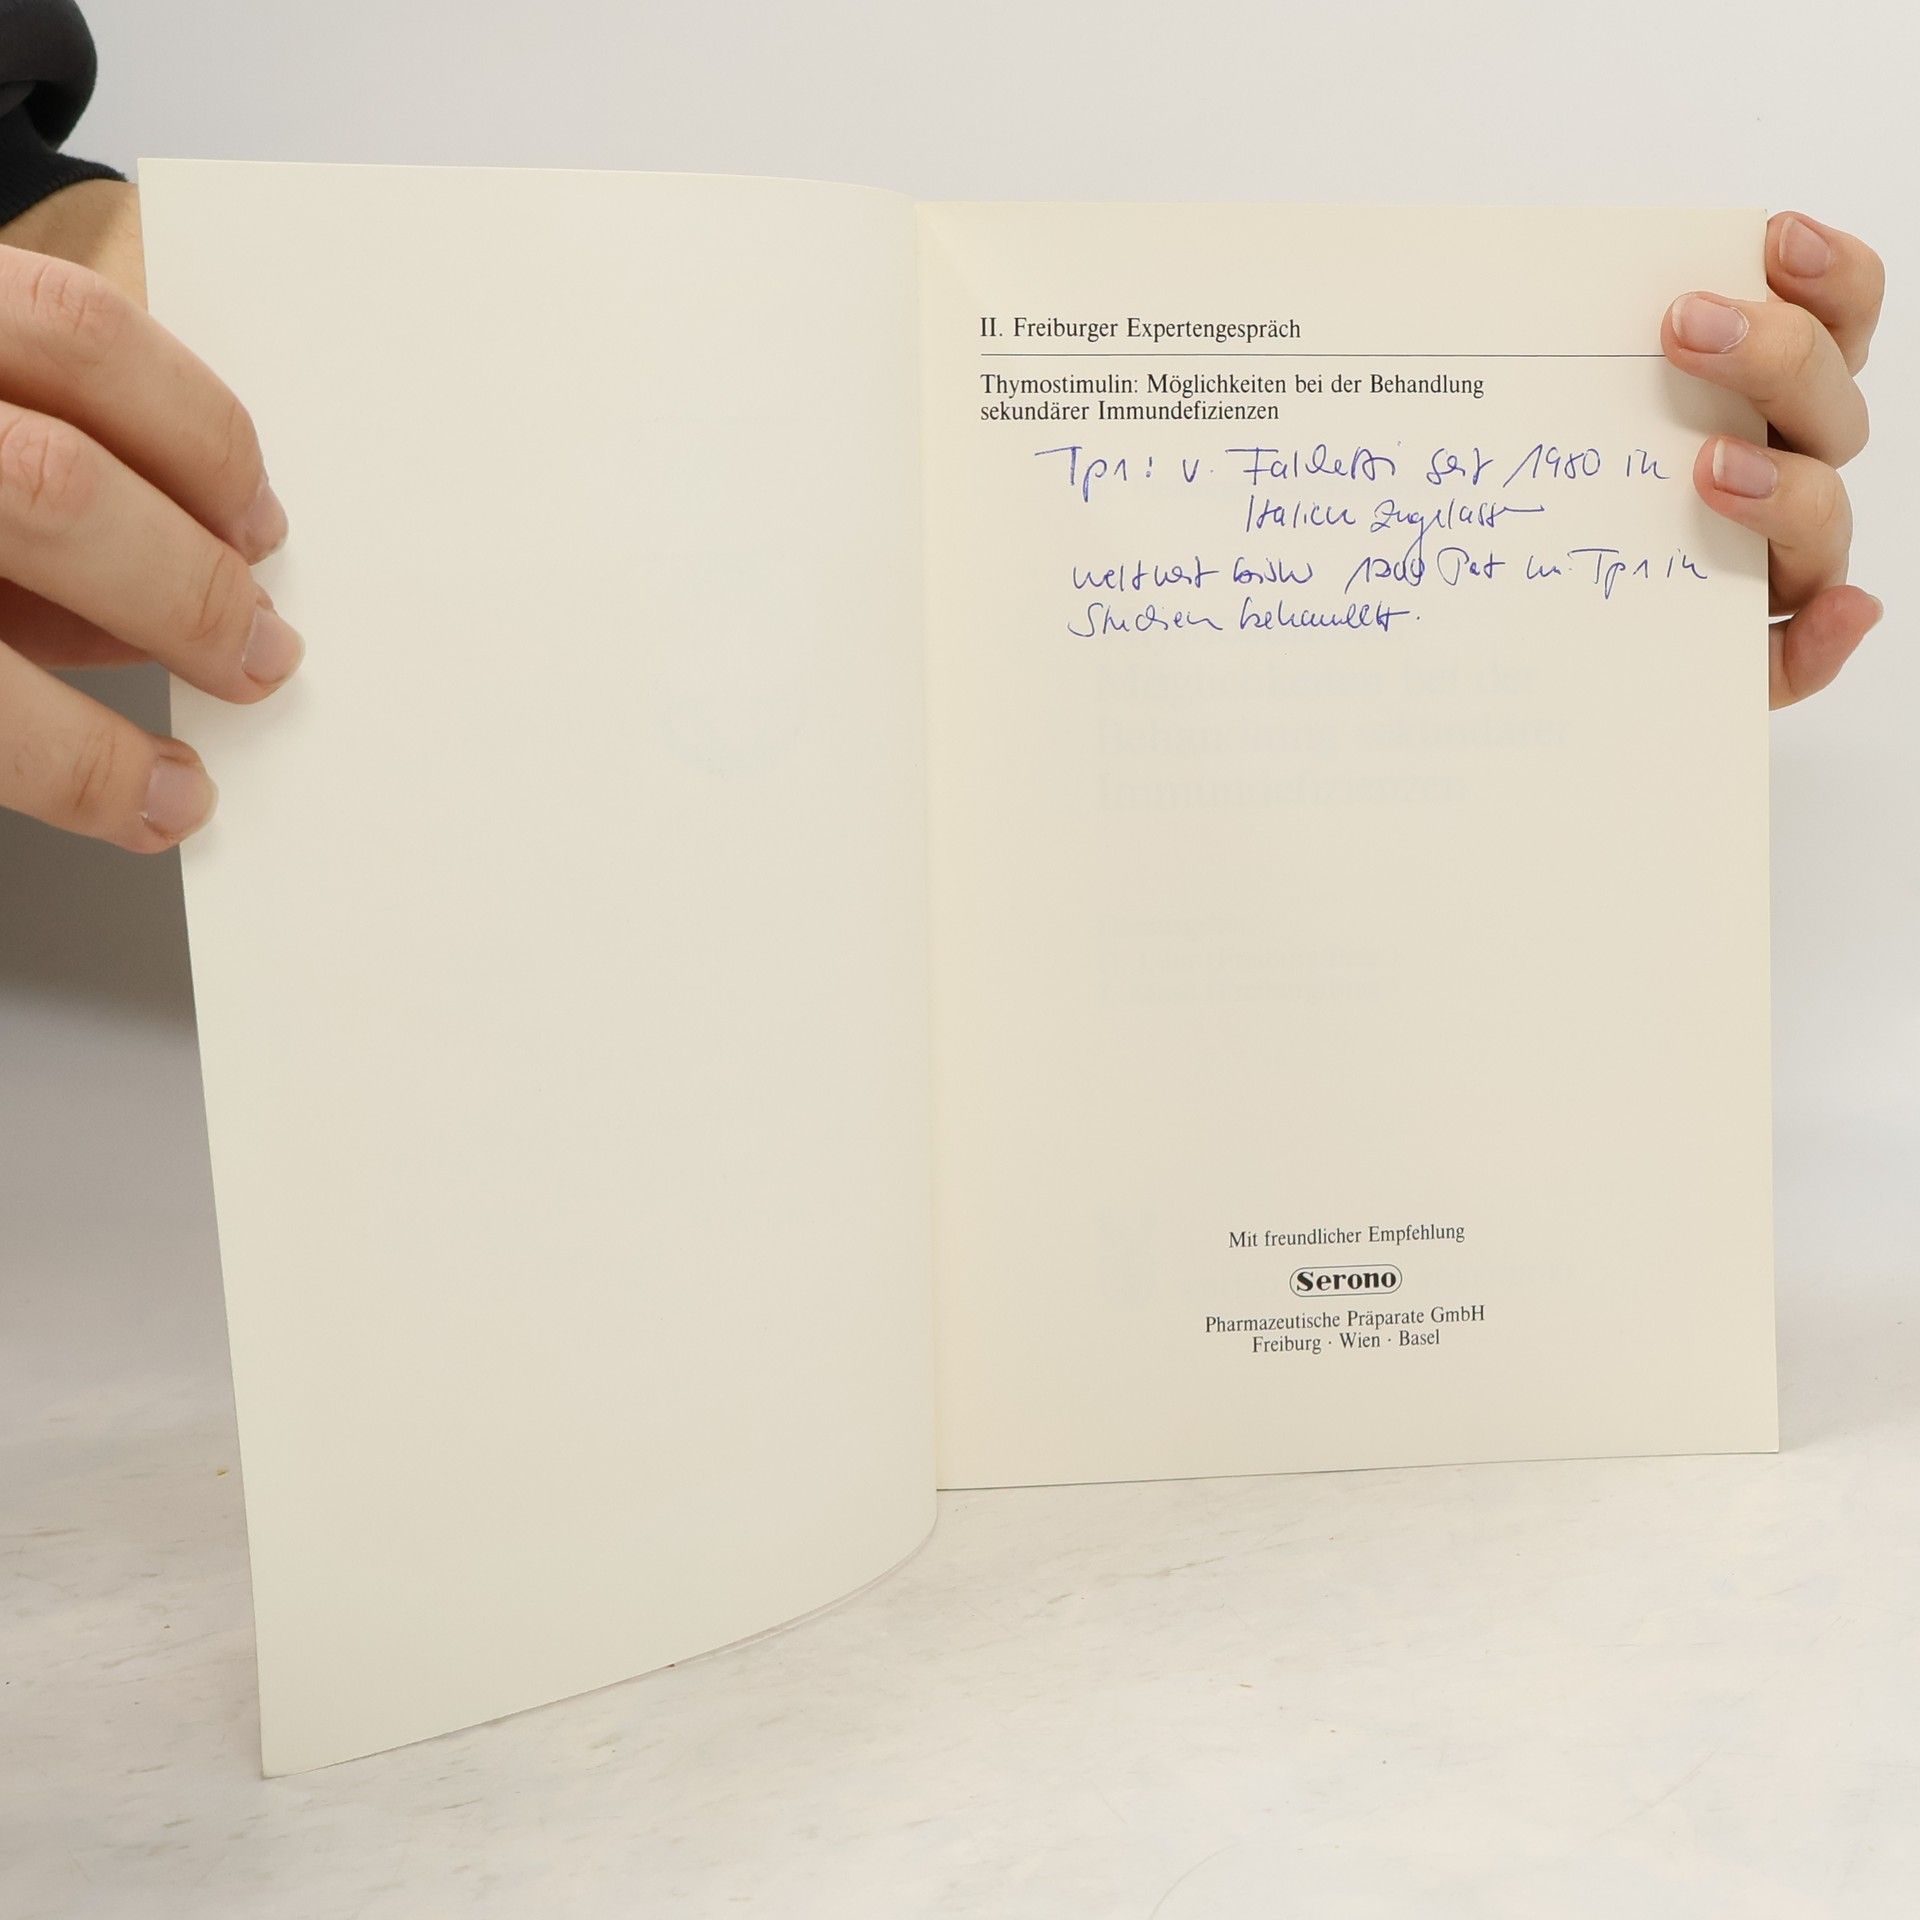 II. Freiburger Expertengespräch
Thymostimulin: Möglichkeiten bei der Behandlung
sekundärer Immundefizienzen
Tp1: v. seit 1980 in
Italien zugelassen
weltweit bisher Pat mit Tp1 in
Studien behandelt.
Möglichkeiten bei der
Behandlung sekundärer
Immundefizienzen
Mit freundlicher Empfehlung
Serono
Pharmazeutische Präparate GmbH
Freiburg · Wien · Basel